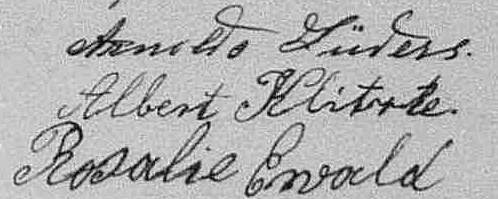 Arnoldo Lüders.
Albert Klitzke.
Rosalie Ewald